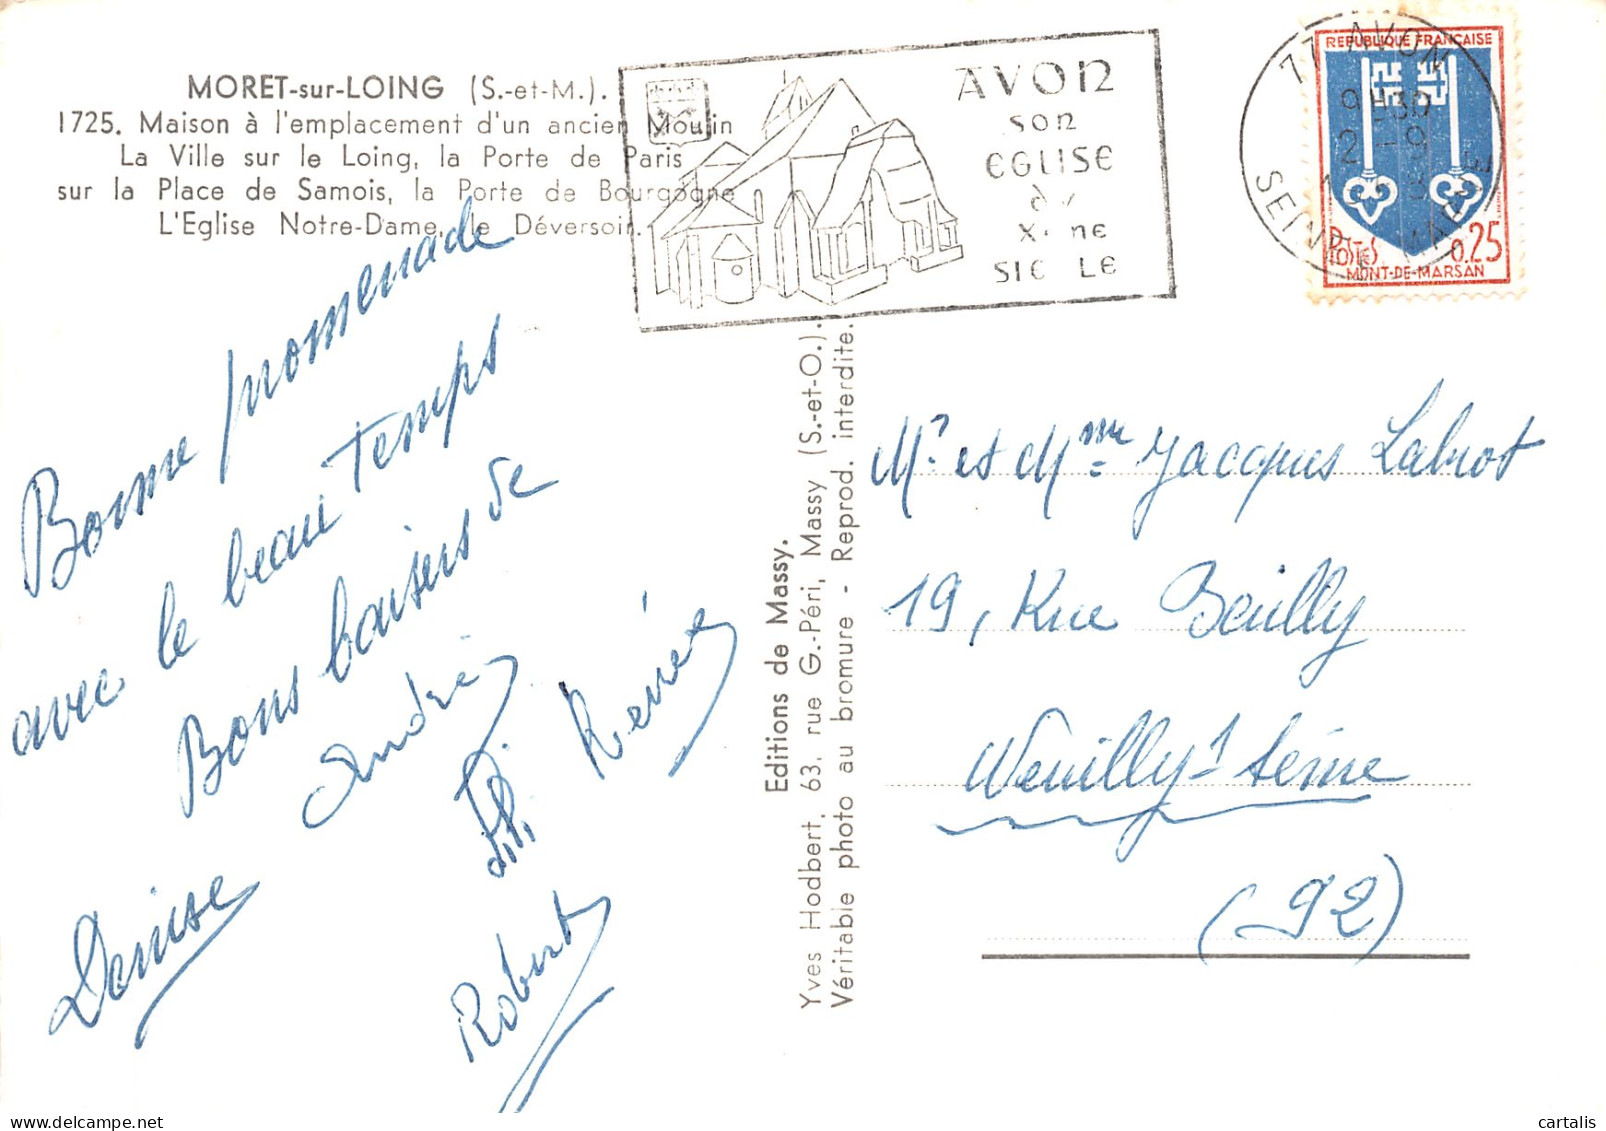 MORET-sur-LOING (S.-et-M.).
1725. Maison à l'emplacement d'un ancien Moulin
La Ville sur le Loing, la Porte de Paris
sur la Place de Samois, la Porte de Bourgogne
L'Eglise Notre-Dame, le Déversoir.
AVON
SON
EGLISE
du
XI ne
SIE LE
77 AVON
9H30
2 - 9
SEINE ET MARNE
REPUBLIQUE FRANÇAISE
POSTES 0,25
MONT-DE-MARSAN
Bonne promenade
avec le beau temps
Bons baisers de
André
Renée
Fifi
Denise
Robert
Editions de Massy.
Yves Hodbert, 63, rue G.-Péri, Massy (S.-et-O.).
Véritable photo au bromure - Reprod. interdite.
Mr et Mme Jacques Labrot
19, Rue Boilly
Neuilly s/ Seine
(92)
cartalis